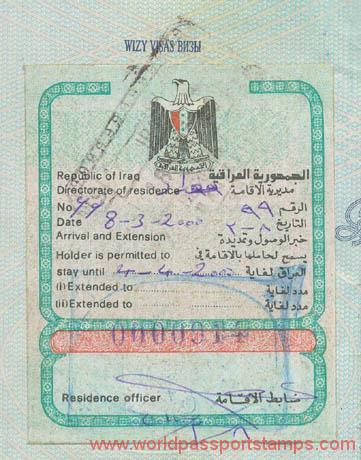 WIZY VISAS ВИЗЫ
Republic of Iraq
الجمهورية العراقية
Directorate of residence
مديرية الاقامة
No. 99
الرقم ٩٩
Date 8-3-2000
التاريخ
Arrival and Extension
خبر الوصول وتمديدة
Holder is permitted to
يسمح لحاملها بالاقامة في
stay until 4-4-2000
العراق لغاية
(i) Extended to
مدد لغاية
(ii) Extended to
مدد لغاية
Residence officer
ضابط الاقامة
www.worldpassportstamps.com